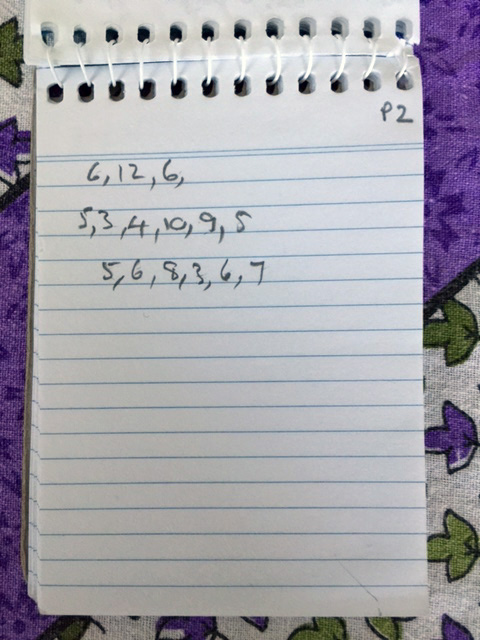 P2
6,12,6,
5,3,4,10,9,5
5,6,8,3,6,7